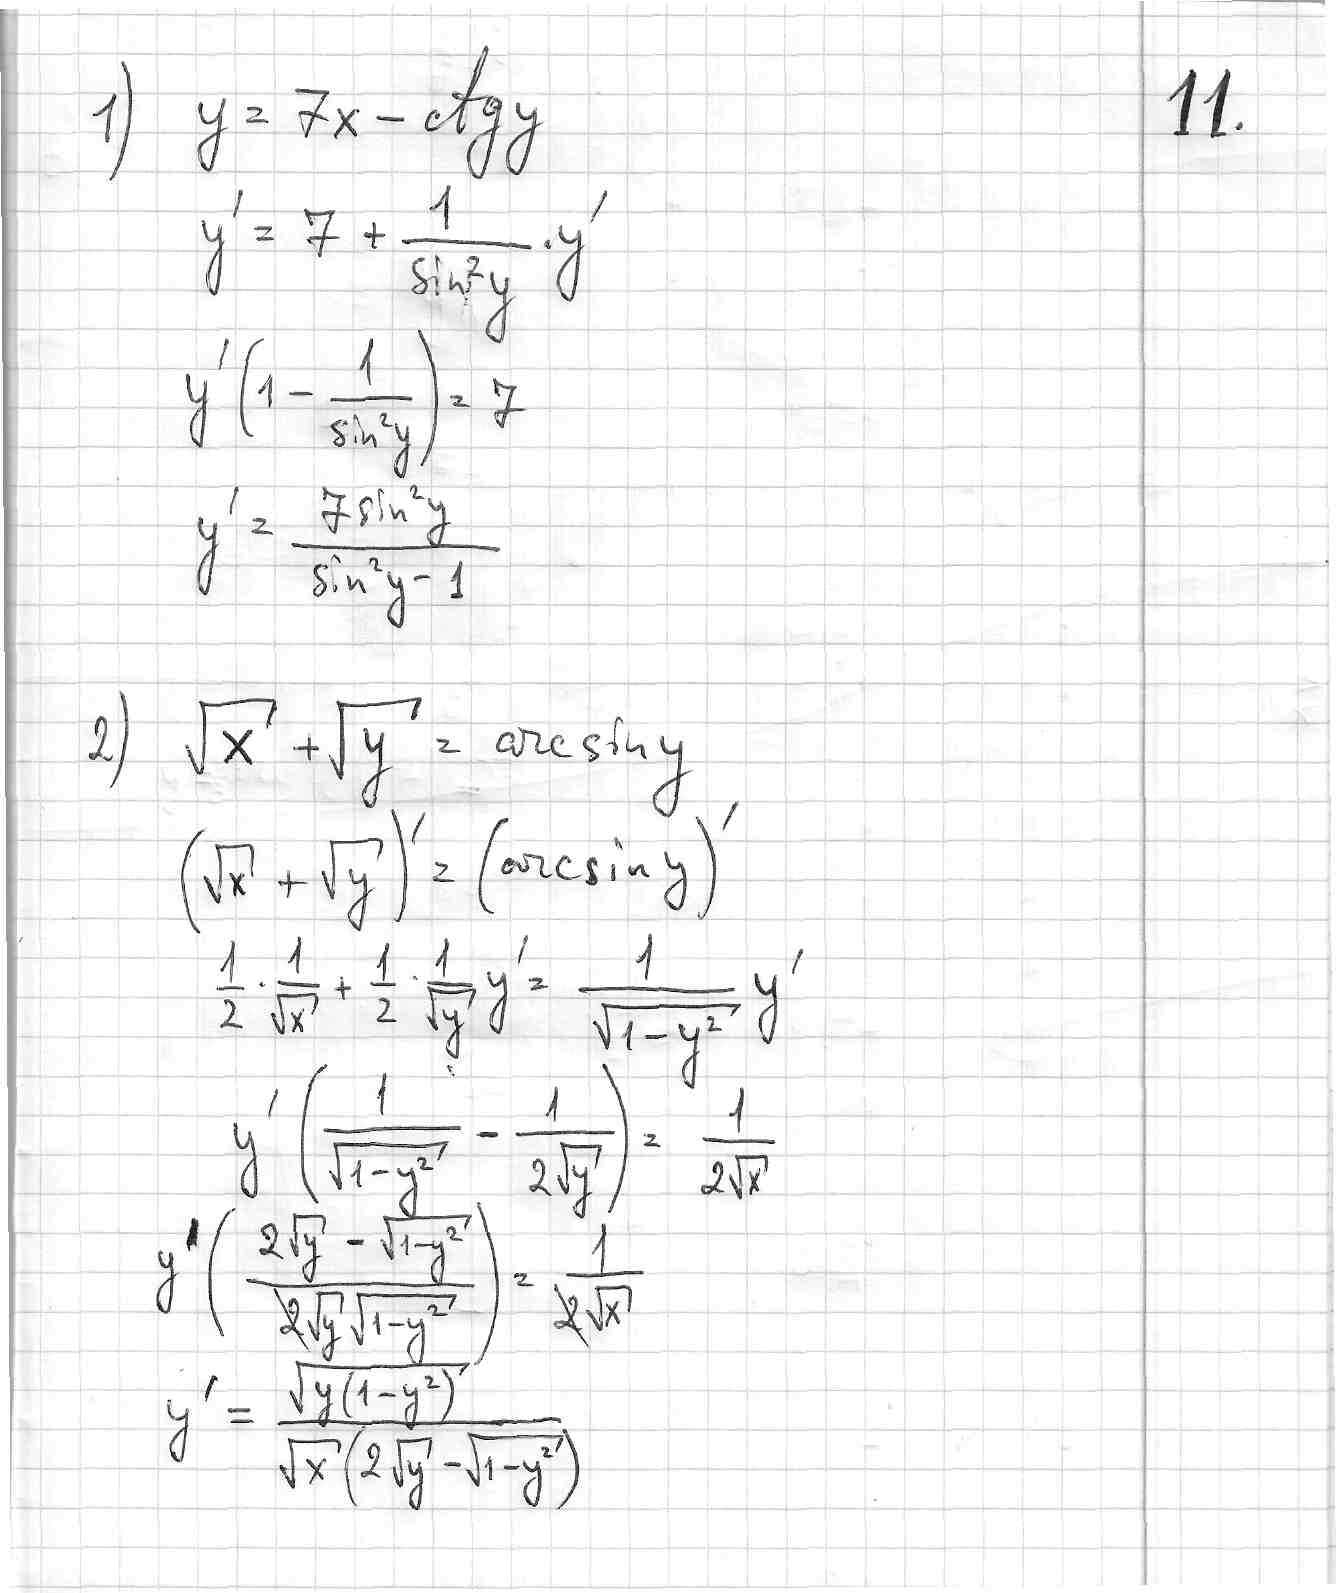 11.
1) y = 7x - ctgy
y' = 7 + 1/sin²y · y'
y'(1 - 1/sin²y) = 7
y' = 7sin²y / (sin²y - 1)
2) √x + √y = arcsiny
(√x + √y)' = (arcsiny)'
1/2 · 1/√x + 1/2 · 1/√y y' = 1/√(1-y²) y'
y' (1/√(1-y²) - 1/(2√y)) = 1/(2√x)
y' ((2√y - √(1-y²)) / (2√y √(1-y²))) = 1/(2√x)
y' = √(y(1-y²)) / (√x (2√y - √(1-y²)))